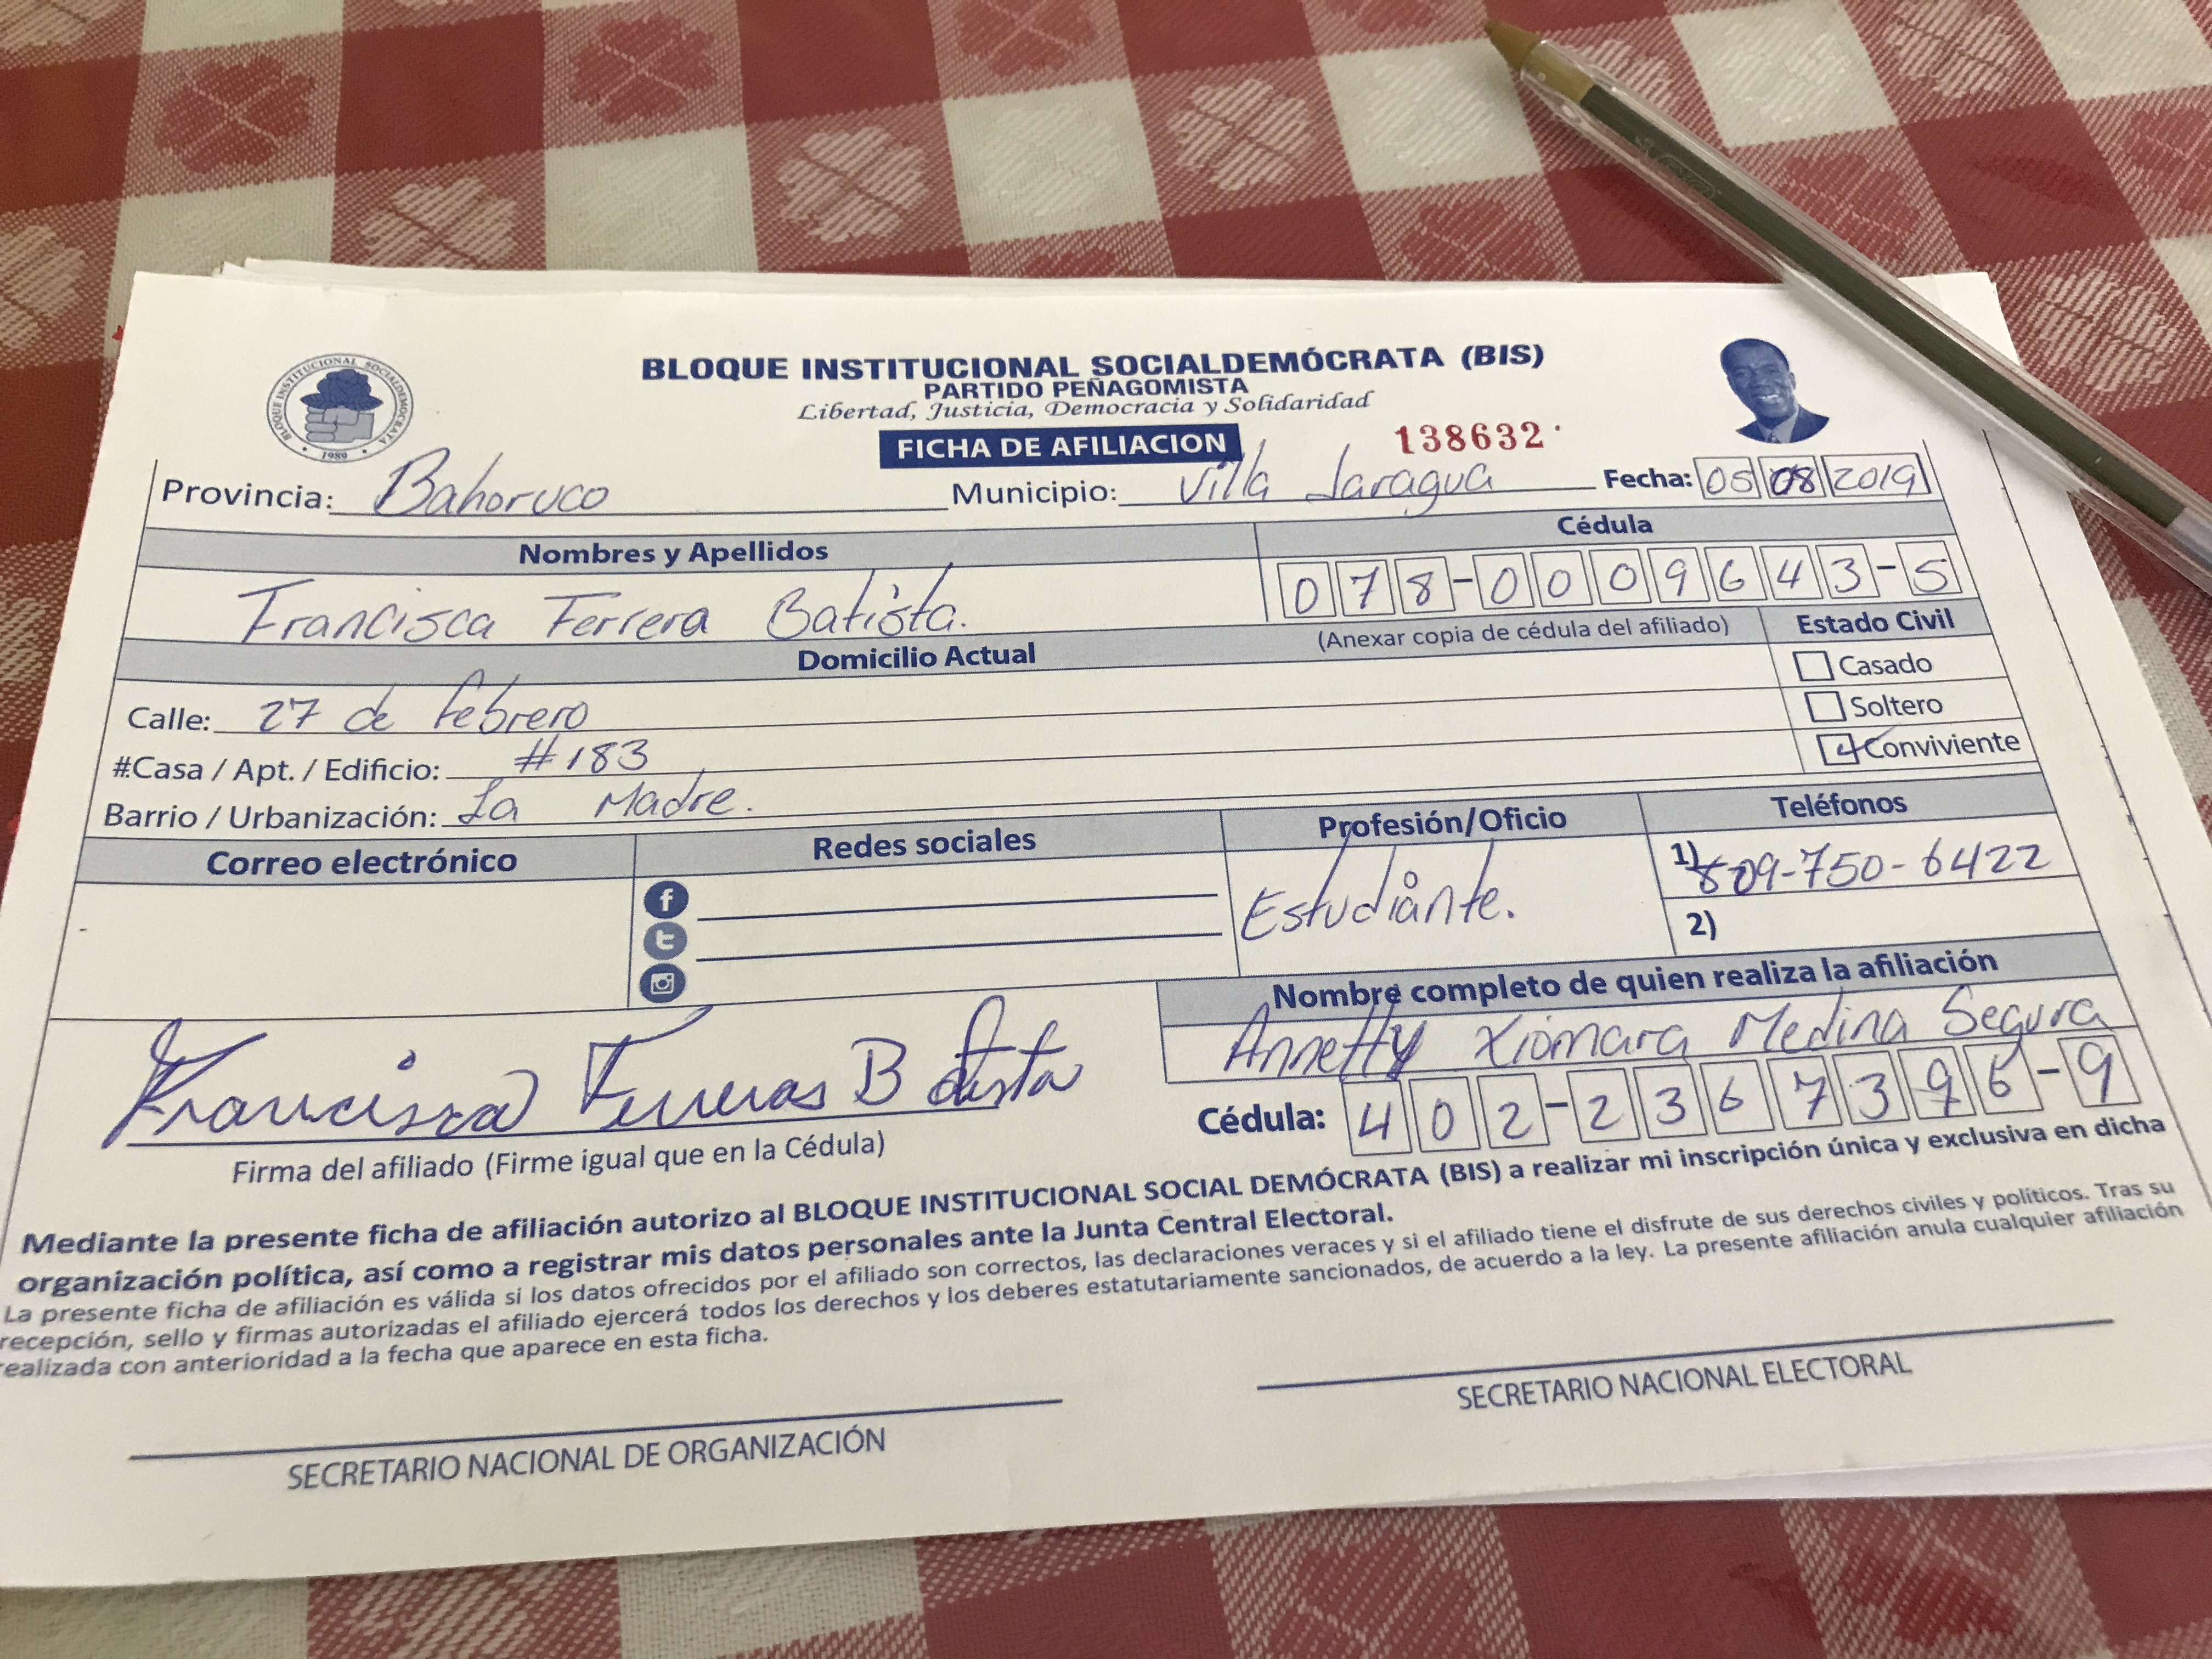 BLOQUE INSTITUCIONAL SOCIALDEMÓCRATA (BIS)
PARTIDO PEÑAGOMISTA
Libertad, Justicia, Democracia y Solidaridad
BLOQUE INSTITUCIONAL SOCIALDEMOCRATA
1989
FICHA DE AFILIACION
138632
Provincia: Bahoruco Municipio: Villa Jaragua Fecha: 05 08 2019
Nombres y Apellidos Cédula
Francisca Ferrera Batista. 078-0009643-5
Domicilio Actual (Anexar copia de cédula del afiliado) Estado Civil
Casado
Calle: 27 de febrero Soltero
#Casa / Apt. / Edificio: #183 Conviviente
Barrio / Urbanización: La Madre.
Correo electrónico Redes sociales Profesión/Oficio Teléfonos
Estudiante. 1) 809-750-6422
2)
Nombre completo de quien realiza la afiliación
Annetty Xiomara Medina Segura
Francisca Ferreras Batista
Cédula: 402-2367396-9
Firma del afiliado (Firme igual que en la Cédula)
Mediante la presente ficha de afiliación autorizo al BLOQUE INSTITUCIONAL SOCIAL DEMÓCRATA (BIS) a realizar mi inscripción única y exclusiva en dicha
organización política, así como a registrar mis datos personales ante la Junta Central Electoral.
La presente ficha de afiliación es válida si los datos ofrecidos por el afiliado son correctos, las declaraciones veraces y si el afiliado tiene el disfrute de sus derechos civiles y políticos. Tras su
recepción, sello y firmas autorizadas el afiliado ejercerá todos los derechos y los deberes estatutariamente sancionados, de acuerdo a la ley. La presente afiliación anula cualquier afiliación
realizada con anterioridad a la fecha que aparece en esta ficha.
SECRETARIO NACIONAL DE ORGANIZACIÓN SECRETARIO NACIONAL ELECTORAL